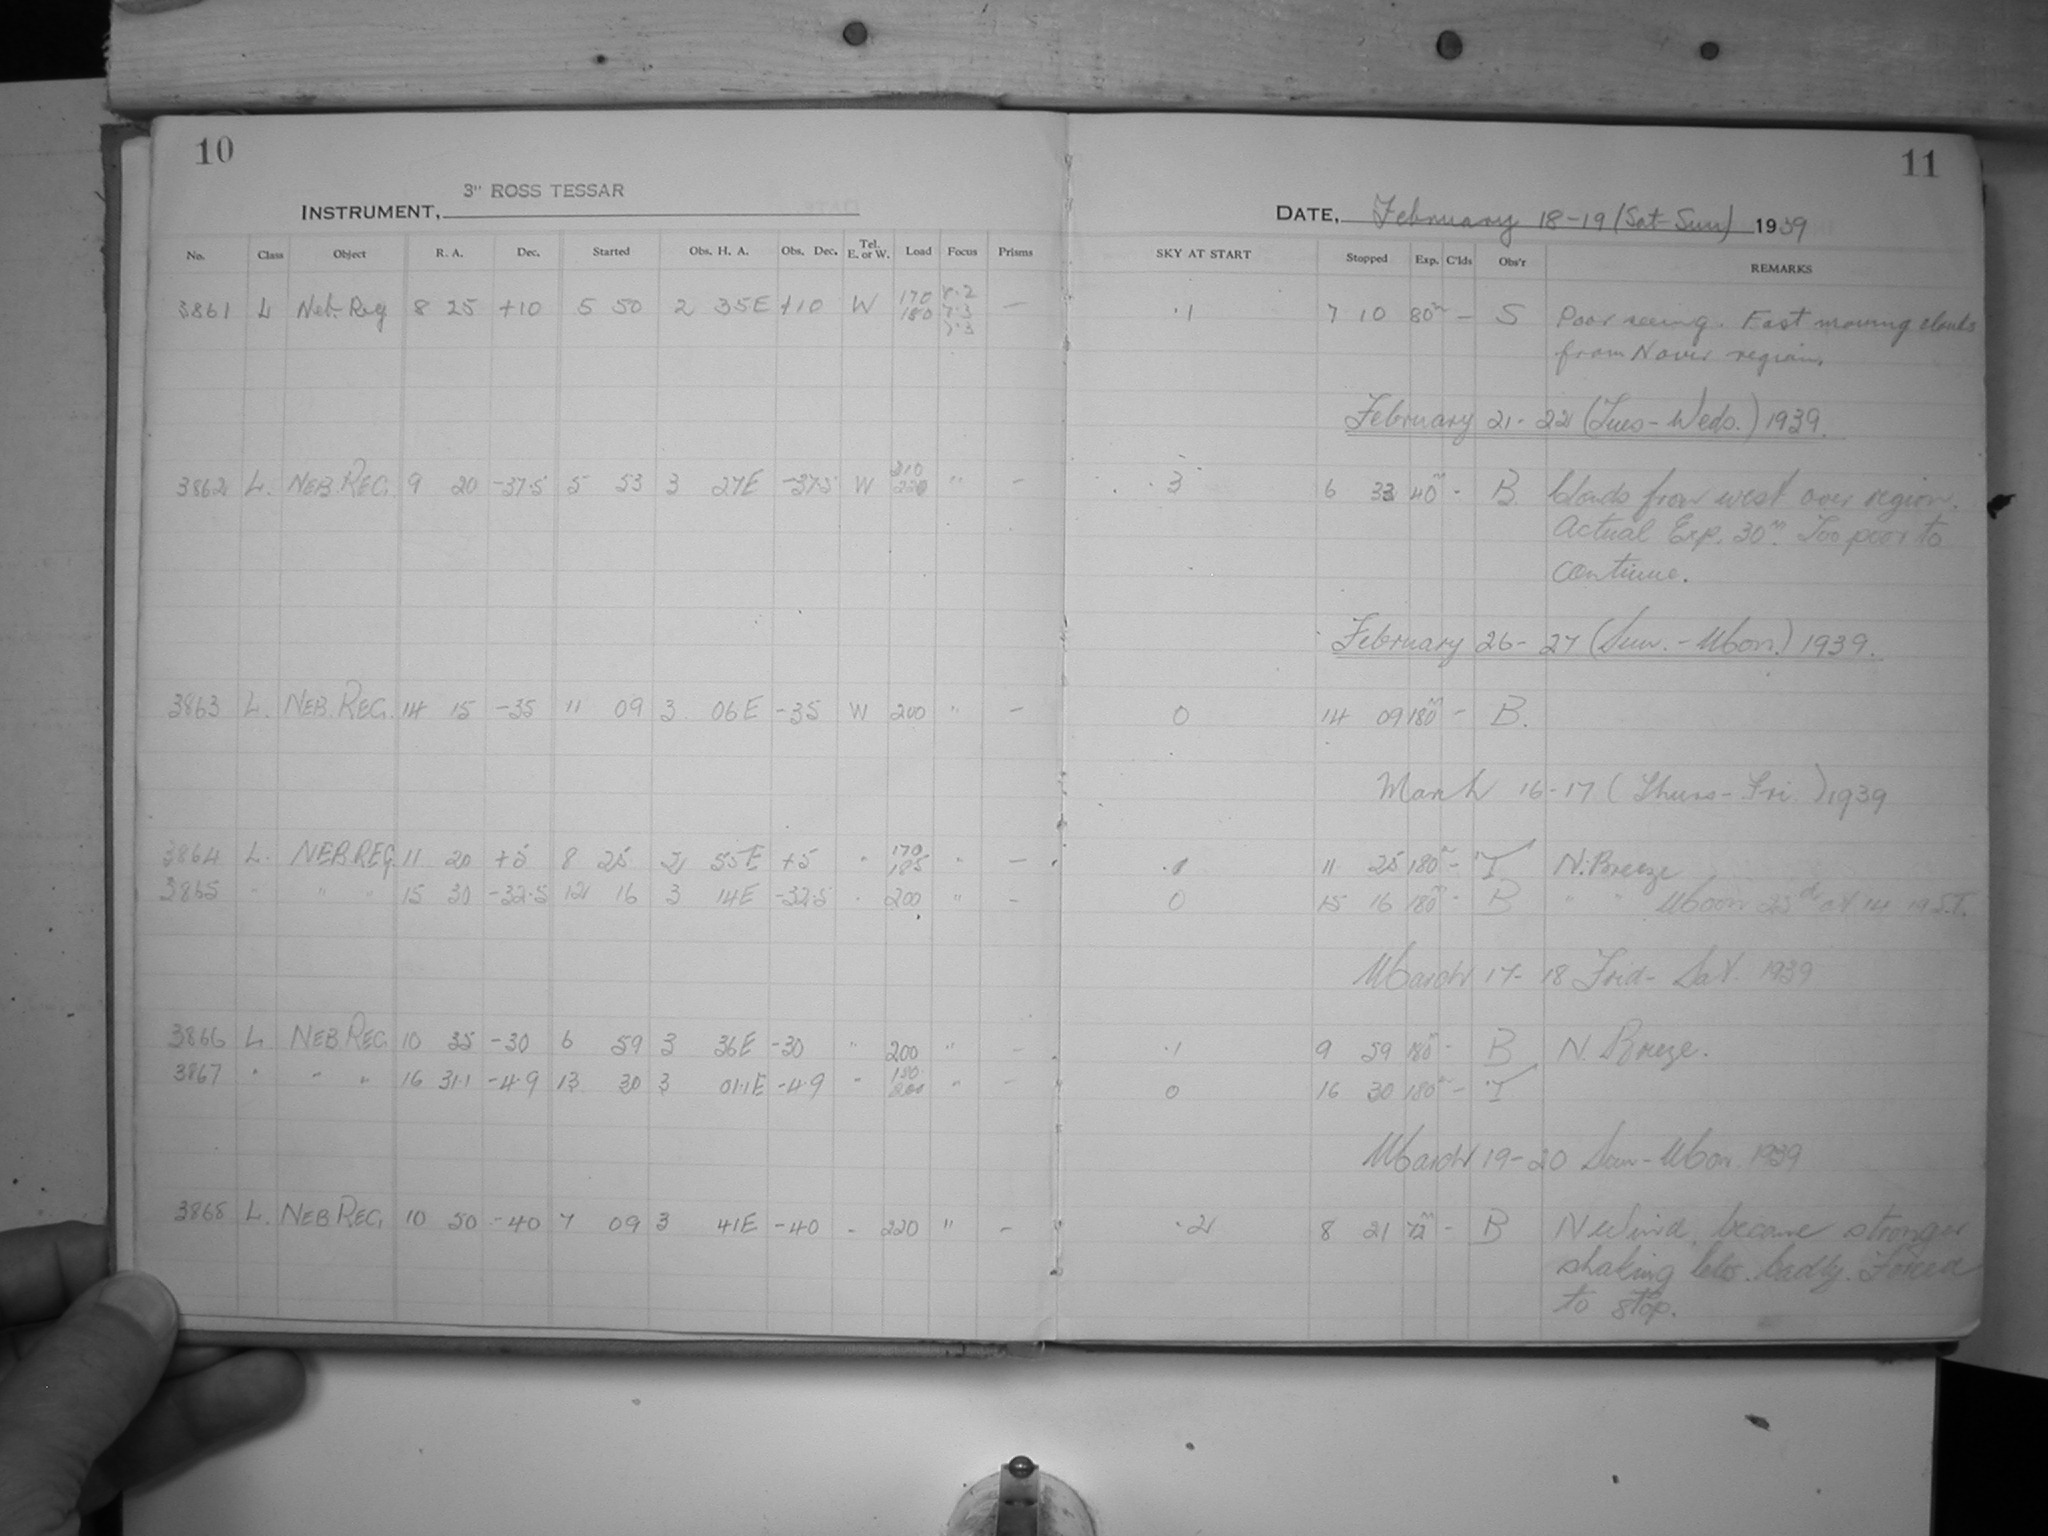 10
3" ROSS TESSAR
INSTRUMENT,
No. Class Object R. A. Dec. Started Obs. H. A. Obs. Dec. Tel. E. or W. Load Focus Prisms
3861 L Neb. Reg 8 25 +10 5 50 2 35E +10 W 170 180 7.3 7.3 —
3862 L. NEB.REG. 9 20 -37.5 5 53 3 27E -37.5 W 210 220 " —
3863 L. NEB.REG. 14 15 -35 11 09 3 06E -35 W 200 " —
3864 L. NEB.REG. 11 20 +5 8 25 2 55E +5 " 170 185 " —
3865 " " " 15 30 -32.5 12 16 3 14E -32.5 " 200 " —
3866 L NEB.REG. 10 35 -30 6 59 3 36E -30 " 200 " —
3867 " " " 16 31.1 -4.9 13 30 3 01.1E -4.9 " 180 200 " —
3868 L. NEB REG. 10 50 -40 7 09 3 41E -40 " 220 " —
11
DATE, February 18-19 (Sat-Sun) 1939
SKY AT START Stopped Exp. C'lds Obs'r REMARKS
.1 7 10 80m — S Poor seeing. Fast moving clouds
from N over region.
February 21-22 (Tues-Weds.) 1939.
.3 6 33 40m - B. Clouds from west over region.
Actual Exp. 30m. Too poor to
continue.
February 26-27 (Sun.-Mon.) 1939.
0 14 09 180m - B.
March 16-17 (Thurs-Fri.) 1939
.1 11 25 180m - T N. Breeze
0 15 16 180m - B " " Moon at 14 19 S.T.
March 17-18 Frid-Sat. 1939
.1 9 59 180m - B N. Breeze.
0 16 30 180m - T
March 19-20 Sun-Mon. 1939
.2 8 21 72m - B N Wind became stronger
shaking badly. Forced
to stop.